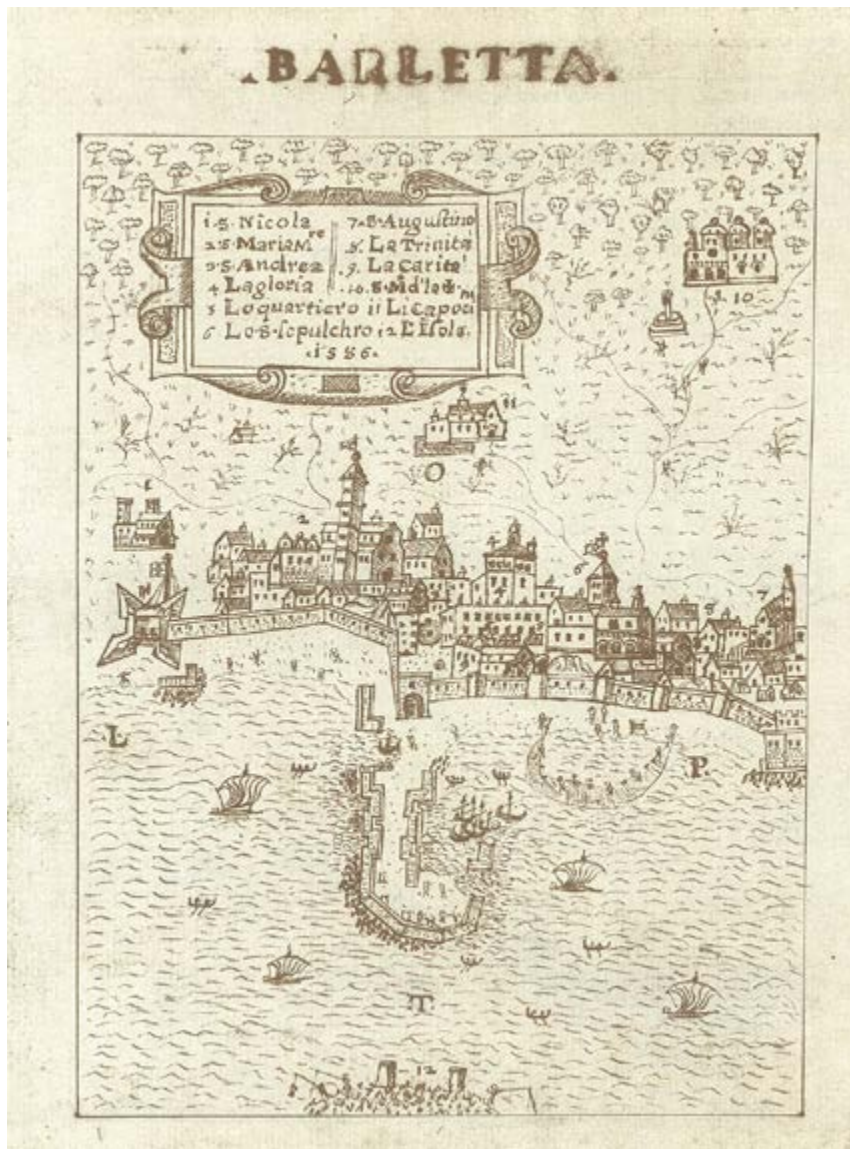 .BARLETTA.
1. S. Nicola
2 S. Maria M^re
3 S. Andrea
4 La gloria
5 Lo quartiero
6 Lo S. sepulchro
7. S. Augustino
8. La Trinita
9. La carita'
.10. S. M d'la
11 Li Capoci
12 L'Isola.
.1586.
10
11
1
2
4
6
7
8
O
L
P.
.T.
12